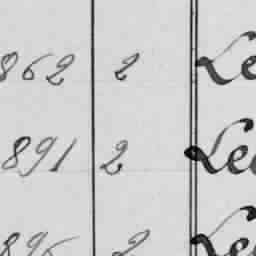 862 2 Le
891 2 Lea
896 2 Le